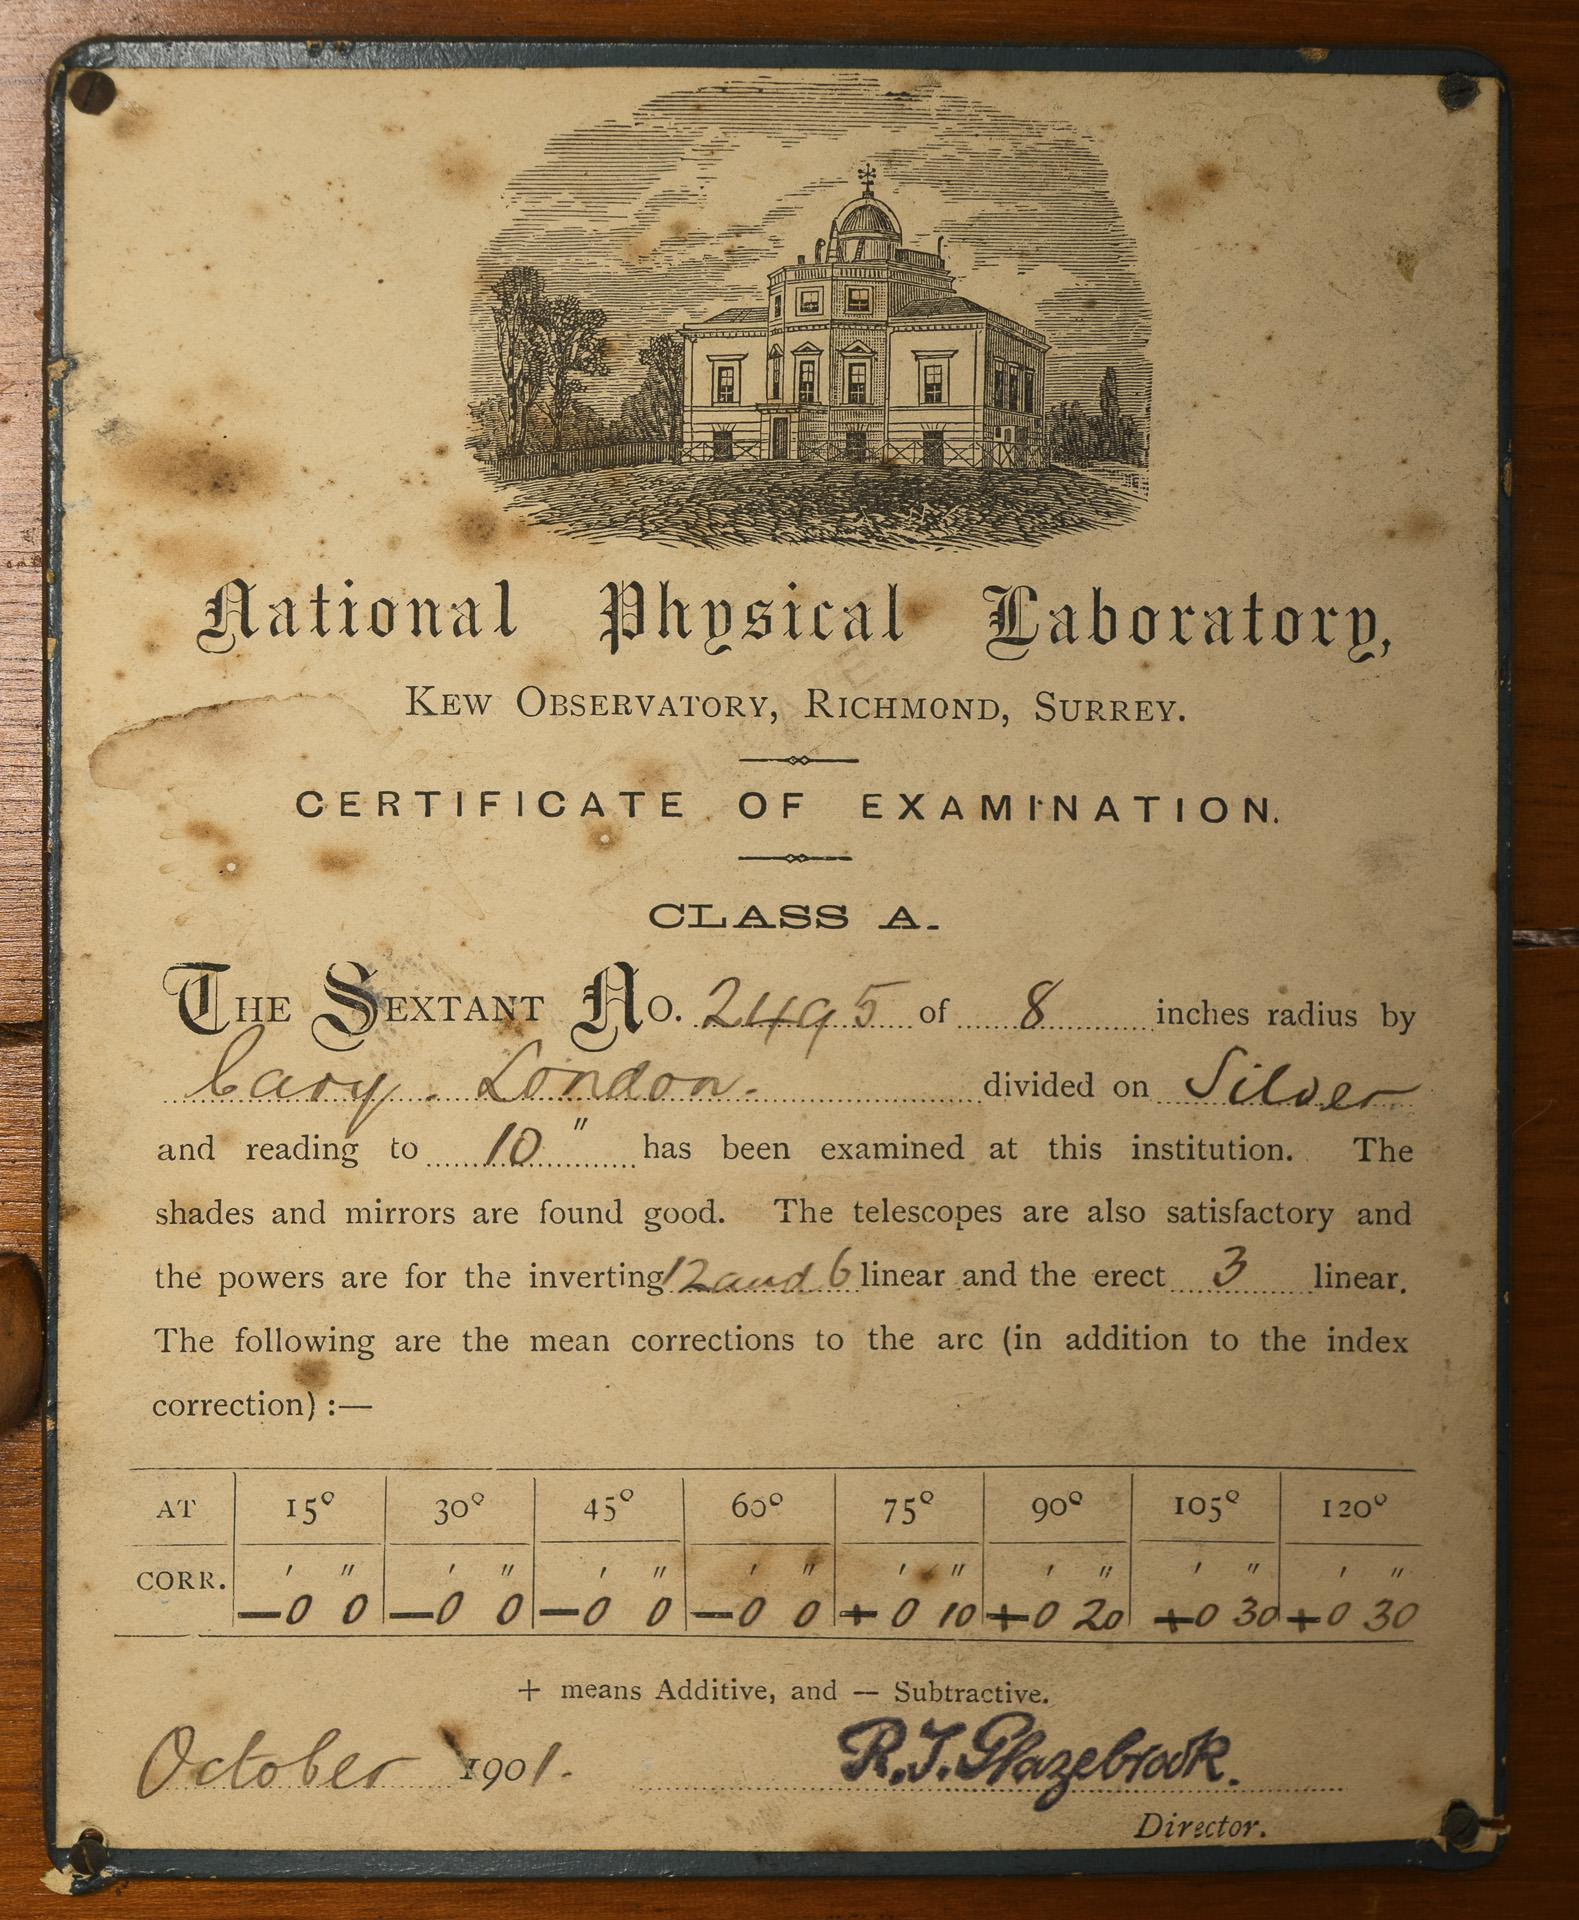 National Physical Laboratory,
KEW OBSERVATORY, RICHMOND, SURREY.
CERTIFICATE OF EXAMINATION.
CLASS A.
THE SEXTANT NO. 2495 of 8 inches radius by
Cary. London. divided on Silver
and reading to 10" has been examined at this institution. The
shades and mirrors are found good. The telescopes are also satisfactory and
the powers are for the inverting 12 and 6 linear and the erect 3 linear.
The following are the mean corrections to the arc (in addition to the index
correction) :—
AT 15° 30° 45° 60° 75° 90° 105° 120°
CORR. ' " ' " ' " ' " ' " ' " ' " ' "
—0 0 —0 0 —0 0 —0 0 + 0 10 +0 20 +0 30 +0 30
+ means Additive, and — Subtractive.
October 1901. R.T. Glazebrook.
Director.